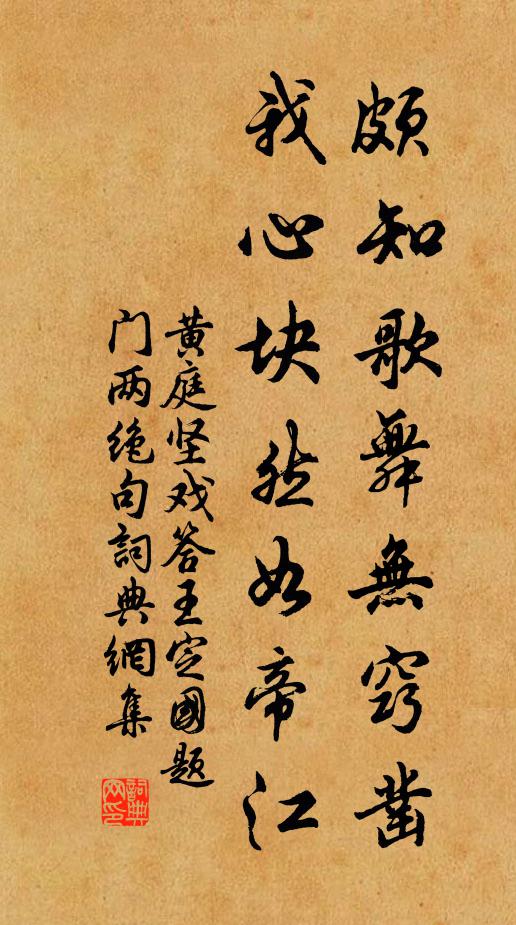 颇知歌舞無窍凿
我心块然如帝江
黄庭坚戏答王定國题
门两绝句詞典網集
詞典网印